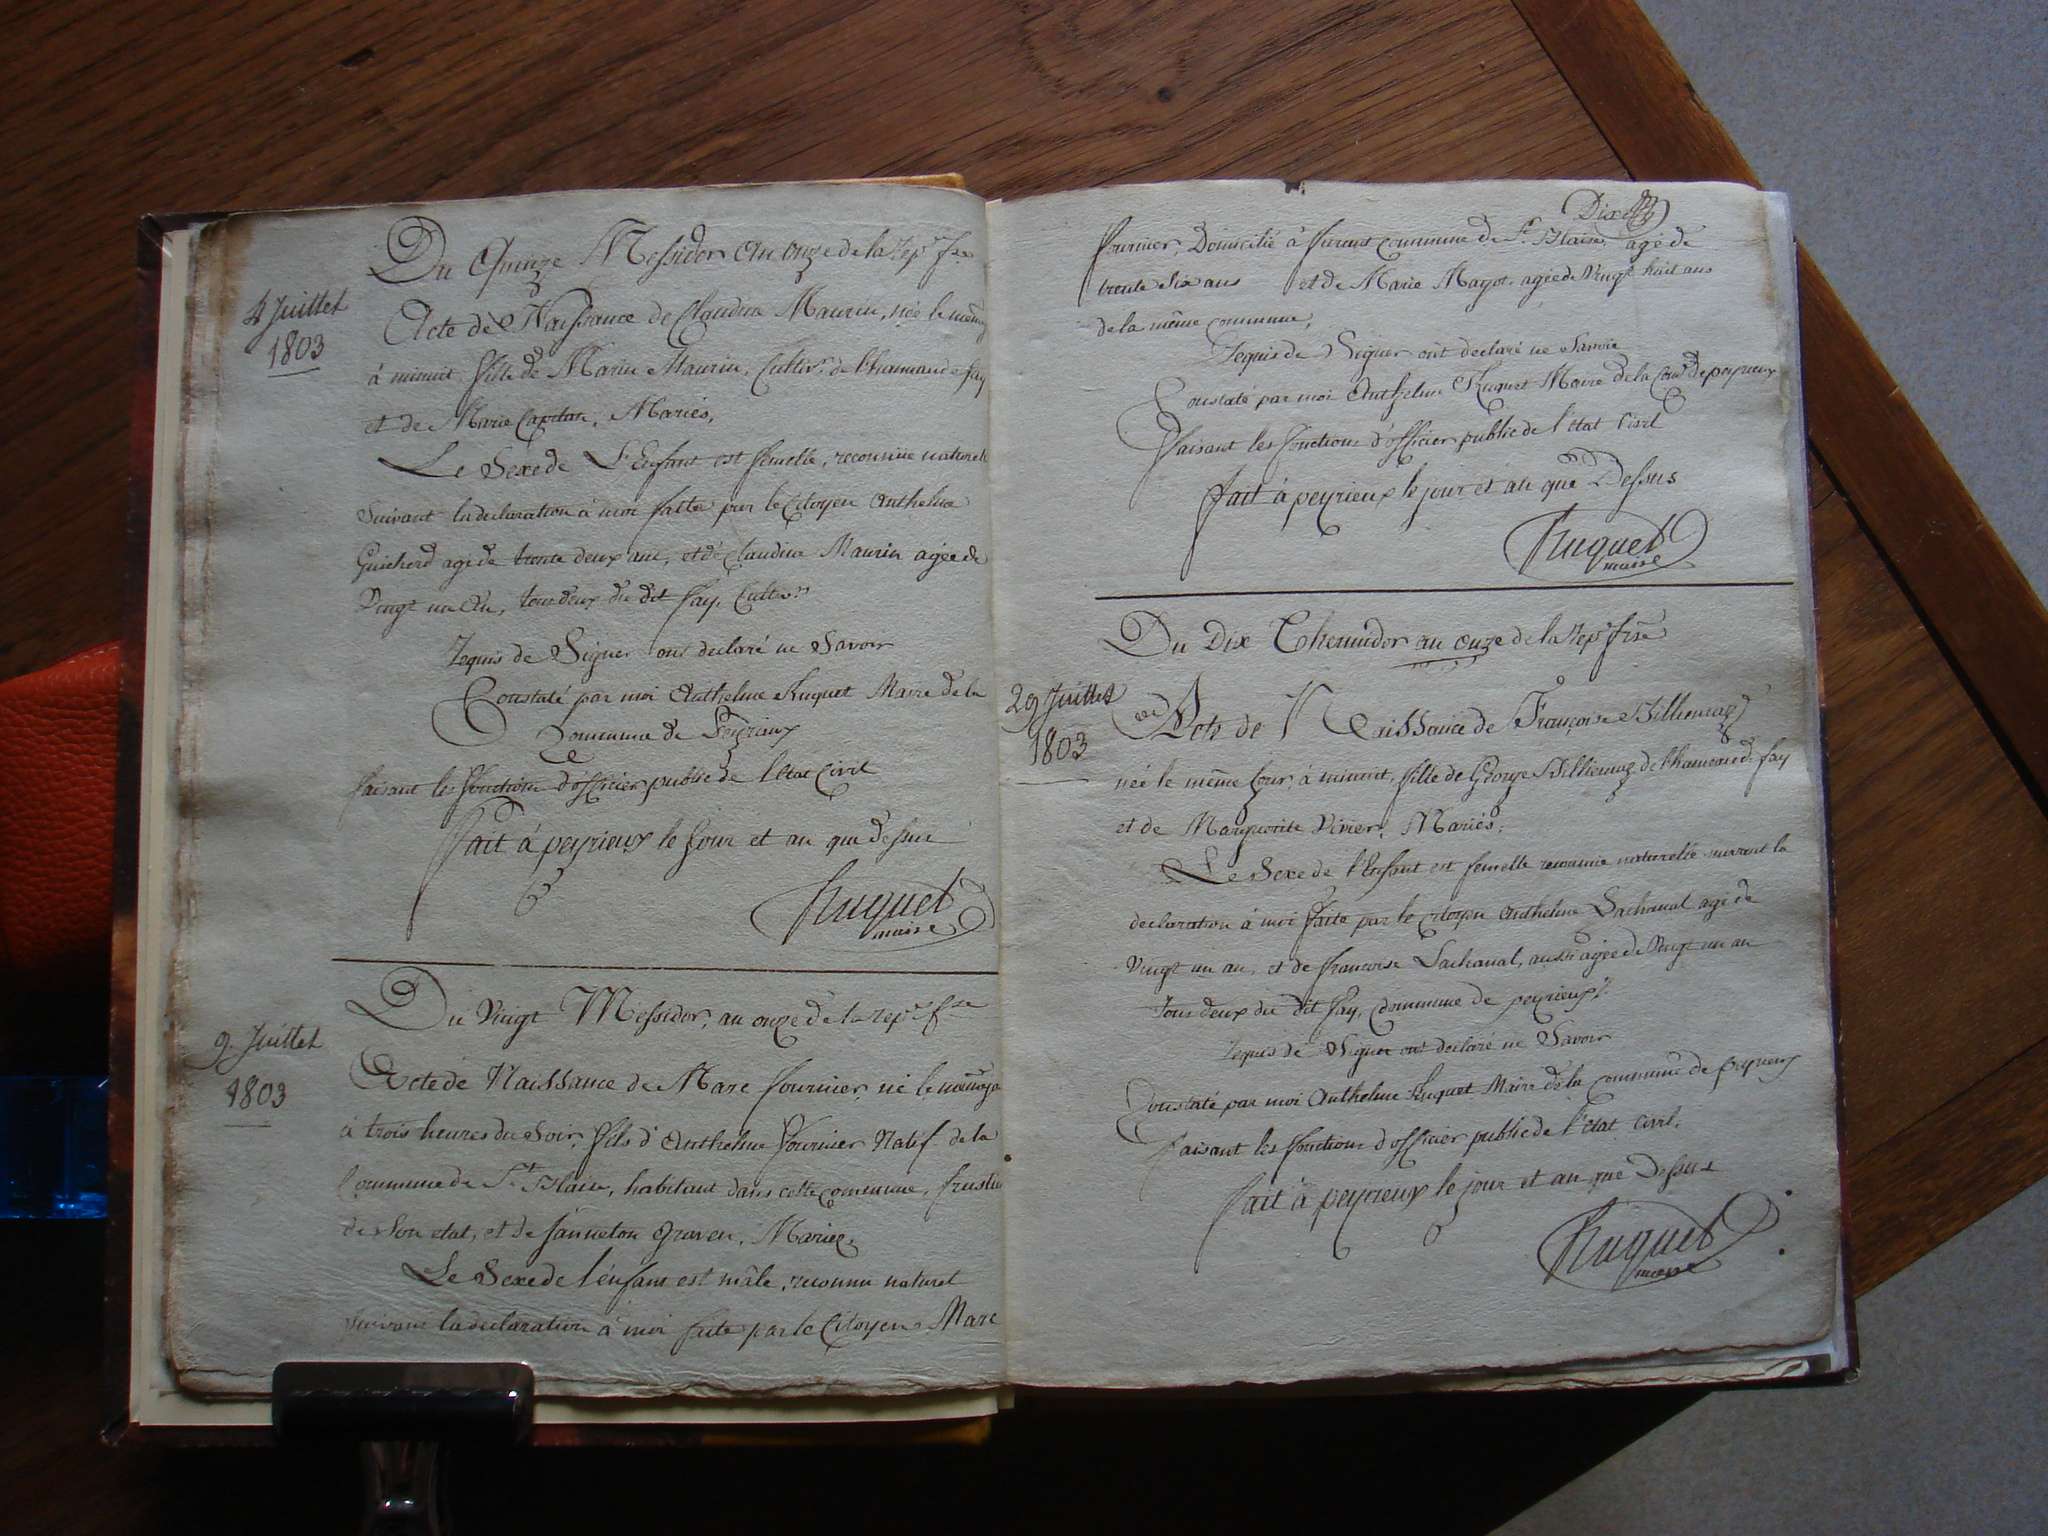 4 Juillet
1803
Du Quinze Messidor an onze de la Rep.e f.se
Acte de Naissance de Claudine Maurin, née le même jour
à minuit fille de Marin Maurin, Cultiv.r de l'hameau de fay
et de Marie Capitan, Mariés,
Le Sexe de L'Enfant est femelle, reconnue naturele
Suivant la declaration à moi faite par le Citoyen Anthelme
Guicherd agé de trente deux ans, et de Claudine Maurin agée de
Vingt un an, tous deux du dit fay, Cultiv.rs
Requis de Signer ont declaré ne Savoir
Constaté par moi Anthelme Huguet Maire de la
Commune de Peyrieux
faisant les fonctions d'officier public de l'Etat Civil
fait à peyrieux le jour et an que dessus
Huguet
maire
9 Juillet
1803
Du Vingt Messidor, an onze de la rep.e f.se
Acte de Naissance de Marc fournier, né le même jour
à trois heures du Soir, fils d'Anthelme fournier Natif de la
Commune de S.t Blaise, habitant dans cette commune,
de son etat, et de Janneton graven, Mariés,
Le Sexe de l'enfant est mâle, reconnu naturel
suivant la declaration à moi faite par le Citoyen Marc
Dix
fournier, Domicilié à furans commune de S.t Blaise, agé de
trente six ans et de Marie Magot, agée de Vingt huit ans
de la même commune,
Requis de Signer ont declaré ne Savoir
Constaté par moi Anthelme Huguet Maire de la Com.e de peyrieux
faisant les fonctions d'officier public de l'etat Civil
fait à peyrieux le jour et an que Dessus
Huguet
maire
29 Juillet
1803
Du Dix Thermidor an onze de la Rep.e f.se
Acte de Naissance de Françoise Billiemaz
née le même jour, à minuit, fille de George Billiemaz de l'hameau de fay
et de Marguerite Vivier, Mariés,
Le Sexe de l'Enfant est femelle reconnue naturelle suivant la
declaration à moi faite par le citoyen Anthelme Lachanal agé de
Vingt un an, et de francoise Lachanal, aussi agée de Vingt un an
Tous deux du dit fay, Commune de peyrieux
Requis de Signer ont declaré ne Savoir
Constaté par moi Anthelme Huguet Maire de la commune de peyrieux
faisant les fonctions d'officier public de l'etat Civil.
fait à peyrieux le jour et an que Dessus
Huguet
maire